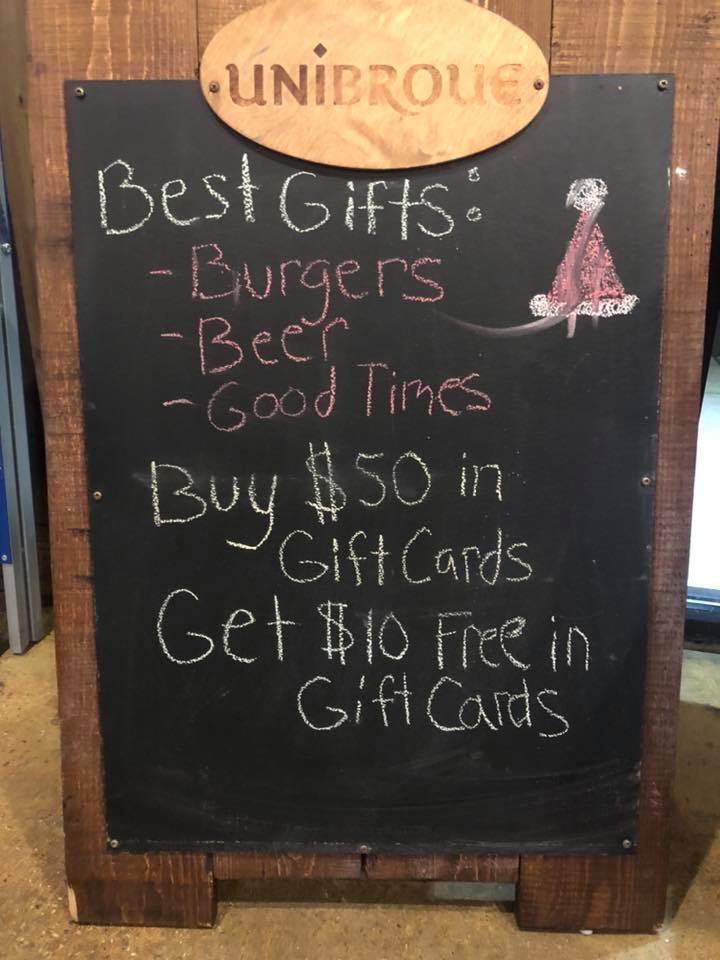 UNIBROUE
Best Gifts:
- Burgers
- Beer
- Good Times
Buy $50 in
Gift Cards
Get $10 Free in
Gift Cards